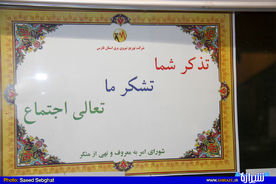 شرکت توزیع نیروی برق استان فارس
تذکر شما
تشکر ما
تعالی اجتماع
شورای امر به معروف و نهی از منکر
Photo: Saeed Sebghati
شیرازه